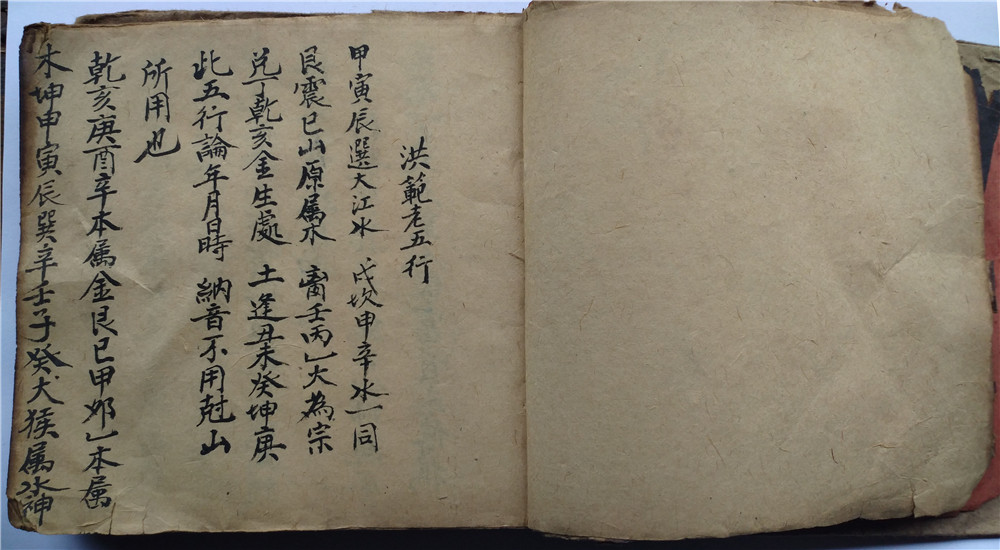 洪範老五行
甲寅辰選大江水 戌坎申辛水一同
艮震巳山原属木 壬丙乙大為宗
兌丁乾亥金生處 土逢丑未癸坤庚
此五行論年月日時 納音不用尅山
所用也
乾亥庚酉辛本属金艮巳甲卯乙本属
木坤申寅辰巽辛壬子癸犬猴属水神